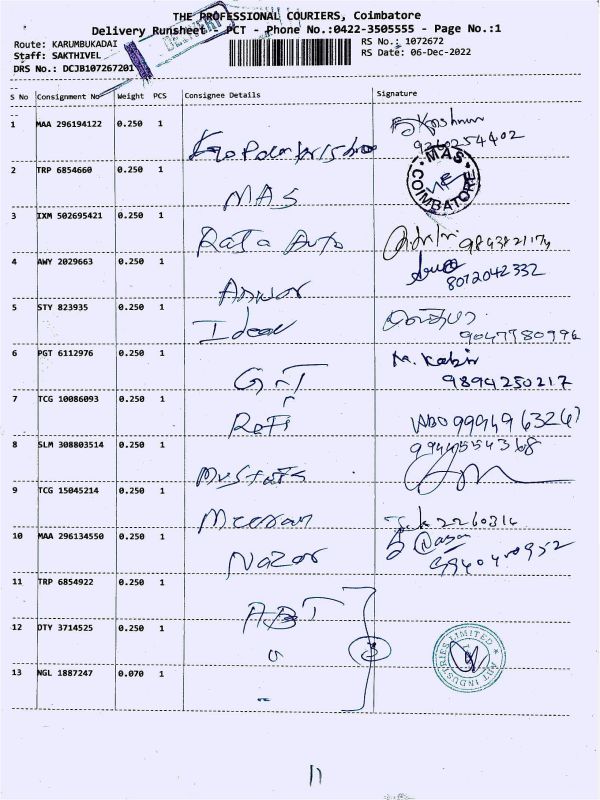 THE PROFESSIONAL COURIERS, Coimbatore
Delivery Runsheet - PCT - Phone No.:0422-3505555 - Page No.:1
Route: KARUMBUKADAI
Staff: SAKTHIVEL
DRS No.: DCJB107267201
RS No.: 1072672
RS Date: 06-Dec-2022
S No Consignment No Weight PCS Consignee Details Signature
1 MAA 296194122 0.250 1
2 TRP 6854660 0.250 1 MAS
MAS COIMBATORE
3 IXM 502695421 0.250 1 Rata Auto
4 AWY 2029663 0.250 1 Anwar
8072042332
5 STY 823935 0.250 1 Ideal
9047780996
6 PGT 6112976 0.250 1 GNT M. Kabir
9894250217
7 TCG 10086093 0.250 1 Rafi
8 SLM 308803514 0.250 1 Mustafa
9 TCG 15045214 0.250 1 Meeran
10 MAA 296134550 0.250 1 Nazar
11 TRP 6854922 0.250 1 ABT
12 DTY 3714525 0.250 1 " 3
ABT INDUSTRIES LIMITED
13 NGL 1887247 0.070 1 "